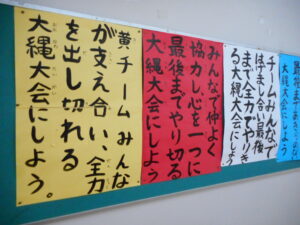 黄チームみんな
が支え合い、全力
を出し切れる
大縄大会にしよう。
みんなで仲よく
協力し心を一つに
最後までやり切る
大縄大会にしよう
チームみんなで
はげまし合い最後
まで全力でやりき
る大縄大会にしよう
大縄大会にしよう